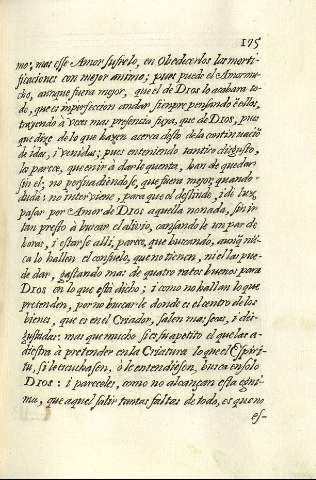 175
mo; mas esse Amor sufrelo, en Obedecerlos las morti-
ficaciones con mejor animo; pues puede el Amor mu-
cho, aunque fuera mejor, que el de DIOS lo acabara to-
do, que es imperfeccion andar siempre pensando ē ellos,
trayendo à veces mas presencia suya, que de DIOS, pues
que dire de lo que hazen acerca desto de la continuaciō
de idas, i venidas; pues en teniendo tantico disgusto,
les parece, que en ir à darle quenta, han de quedar
sin el; no persuadiendose, que fuera mejor, quando
duda no interviene, para que el deslinde, i dè luz,
pasar por Amor de DIOS aquella nonada, sin ir
tan presto à buscar el alivio, cansandole un par de
horas, i estarse alli, parece, que buscando, aunq̄ nū-
ca lo hallen el consuelo, que no tienen, ni el las pue-
de dar, gastando mas de quatro ratos buenos para
DIOS en lo que està dicho; i como no hallan lo que
pretenden, por no buscarle donde es el centro de los
bienes, que es en el Criador, salen mas secas, i dis-
gustadas: mas que mucho si es su apetito el que las a-
diestra à pretender en la Criatura lo que el Espiri-
tu, si le escuchasen, ò le entendiesen, busca en solo
DIOS: i pareceles, como no alcançan esta enig-
ma, que aquel salir tantas faltas de todo, es que no
es-